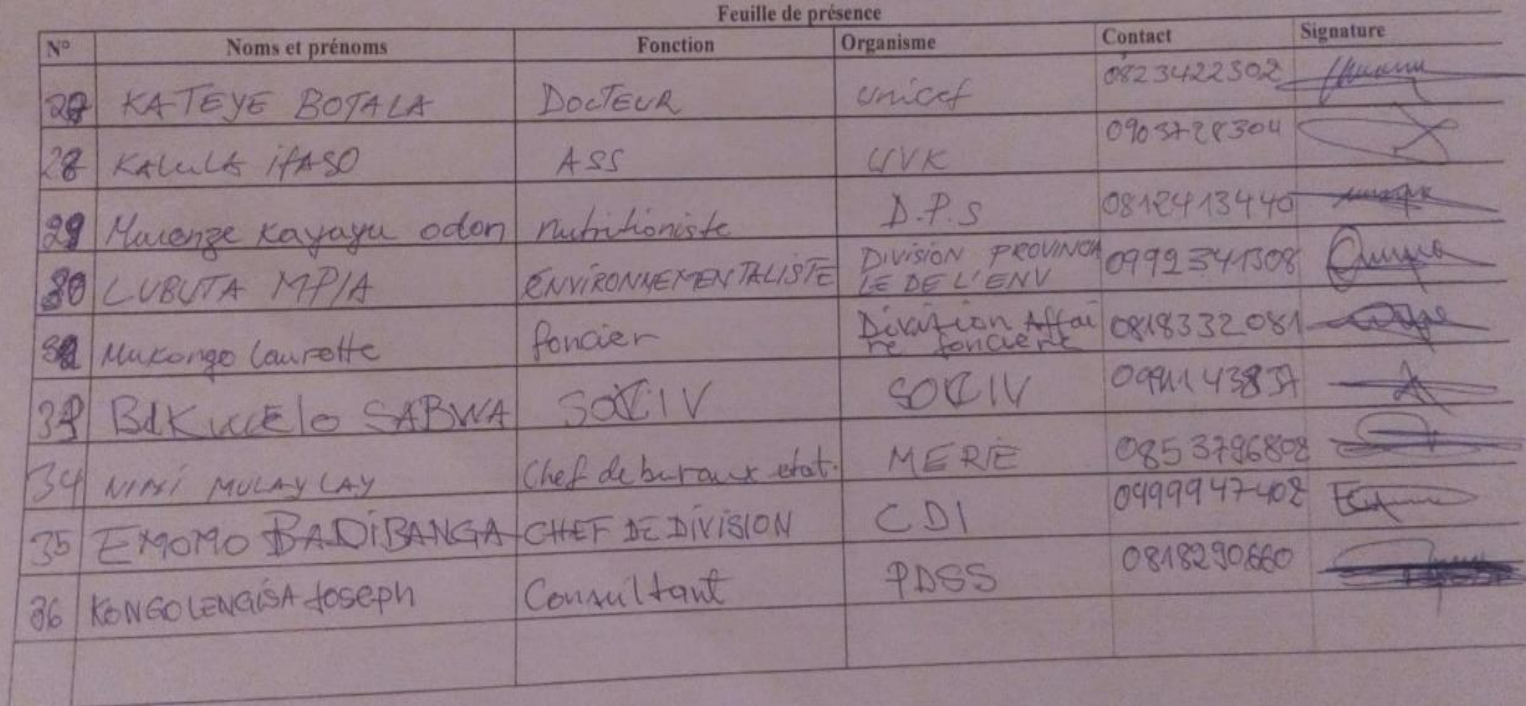 Feuille de présence
N° Noms et prénoms Fonction Organisme Contact Signature
27 KATEYE BOTALA DOCTEUR unicef 0823422302
28 KALULA iFASO ASS UVK 0903728304
29 Murenze Kayayu odon nutritioniste D.P.S 0812413440
30 LUBUTA MPIA ENVIRONNEMENTALISTE DIVISION PROVINCIA 0992341308
LE DE L'ENV
Mukongo Laurette foncier Division Affai 0818332081
re foncière
SABWA SOCCIV SOCCIV
34 NIMI MULAYLAY Chef de buraux etat. MERIE 0853796802
35 EMOMO BADIBANGA CHEF DE DIVISION CDI 0999947402
36 KONGOLENGISA Joseph Consultant PDSS 0818290660